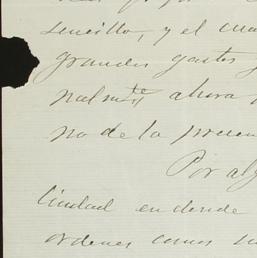 sencillo, y el cua
grandes gastos
nalmte ahora
no de la presen
Por alg
ciudad en donde
ordenes como su